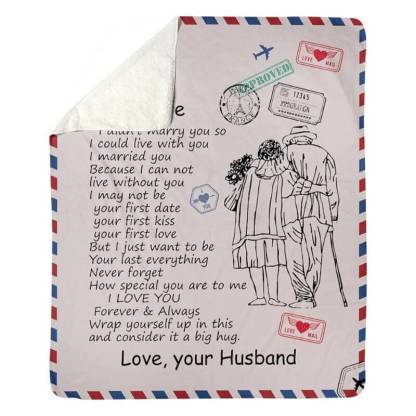 LOVE MAIL
APPROVED
12345
IMMIGRATION
e
I didn't marry you so
I could live with you
I married you
Because I can not
live without you
I may not be
your first date
your first kiss
your first love
But I just want to be
Your last everything
Never forget
How special you are to me
I LOVE YOU
Forever & Always
Wrap yourself up in this
and consider it a big hug.
LOVE MAIL
Love, your Husband